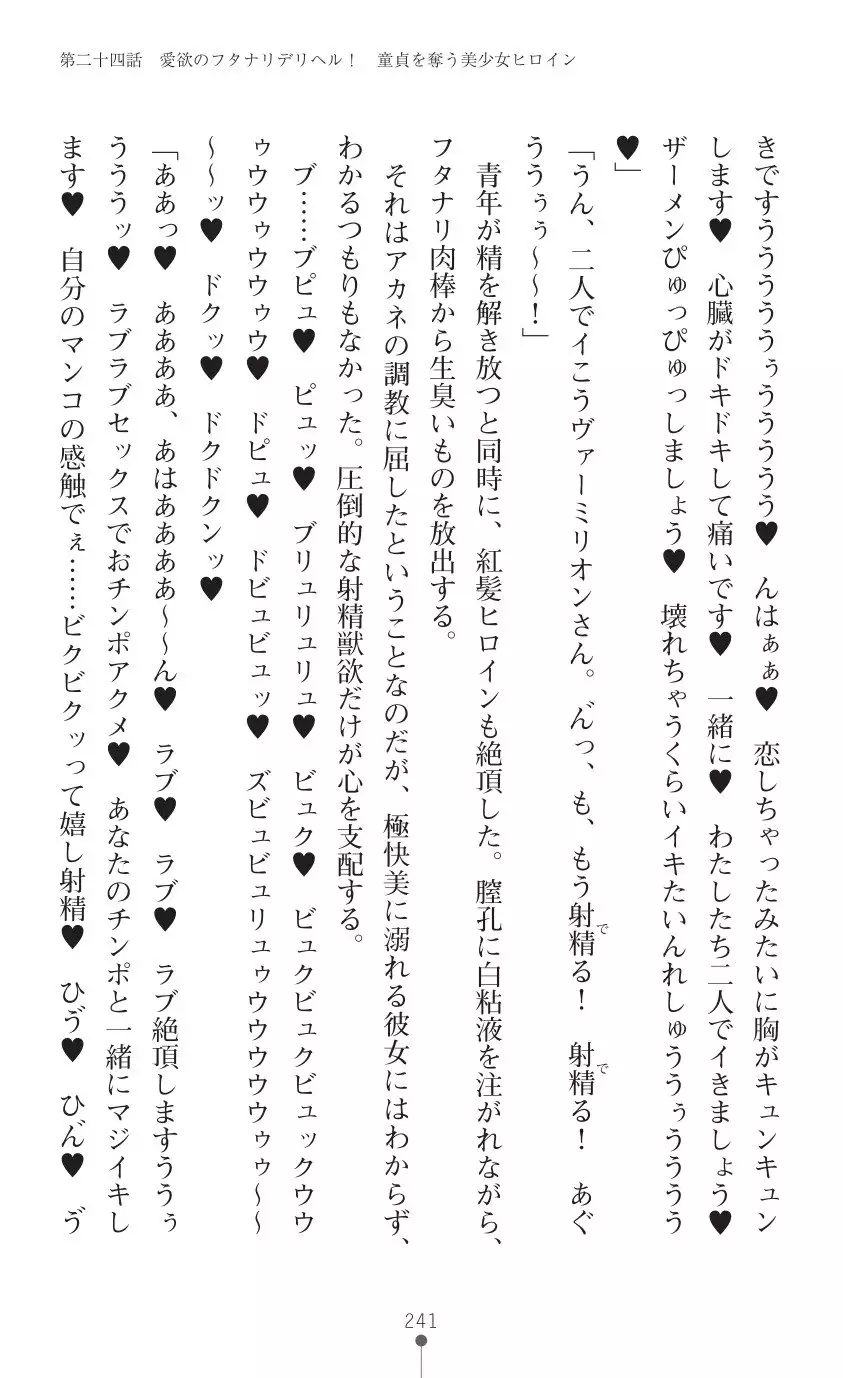 第二十四話　愛欲のフタナリデリヘル！　童貞を奪う美少女ヒロイン
きですうううううぅううううう♥　んはぁぁ♥　恋しちゃったみたいに胸がキュンキュン
します♥　心臓がドキドキして痛いです♥　一緒に♥　わたしたち二人でイきましょう♥
ザーメンぴゅっぴゅっしましょう♥　壊れちゃうくらいイキたいんれしゅううぅうううう
♥」
「うん、二人でイこうヴァーミリオンさん。ん゛っ、も、もう射精る！　射精る！　あぐ
ううぅぅ～～！」
青年が精を解き放つと同時に、紅髪ヒロインも絶頂した。膣孔に白粘液を注がれながら、
フタナリ肉棒から生臭いものを放出する。
それはアカネの調教に屈したということなのだが、極快美に溺れる彼女にはわからず、
わかるつもりもなかった。圧倒的な射精獣欲だけが心を支配する。
ブ……ブピュ♥　ピュッ♥　ブリュリュリュ♥　ビュク♥　ビュクビュクビュックウウ
ゥウウゥウウゥウ♥　ドピュ♥　ドビュビュッ♥　ズビュビュリュゥウウウウウゥゥ～～
～～ッ♥　ドクッ♥　ドクドクンッ♥
「ああっ♥　ああああ、あはああああ～～ん♥　ラブ♥　ラブ♥　ラブ絶頂しますううぅ
うううッ♥　ラブラブセックスでおチンポアクメ♥　あなたのチンポと一緒にマジイキし
ます♥　自分のマンコの感触でぇ……ビクビクッって嬉し射精♥　ひゔ♥　ひん゛♥　ゔ
で
で
241